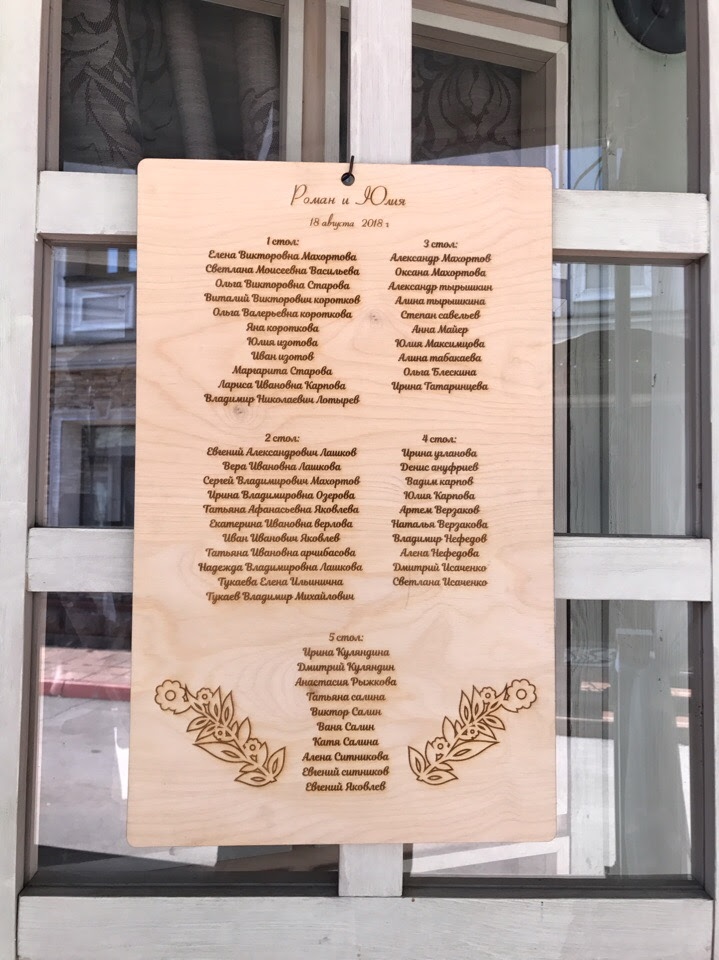 Роман и Юлия
18 августа 2018 г
1 стол:
Елена Викторовна Махортова
Светлана Моисеевна Васильева
Ольга Викторовна Старова
Виталий Викторович коротков
Ольга Валерьевна короткова
Яна короткова
Юлия изотова
Иван изотов
Маргарита Старова
Лариса Ивановна Карпова
Владимир Николаевич Лотырев
2 стол:
Евгений Александрович Лашков
Вера Ивановна Лашкова
Сергей Владимирович Махортов
Ирина Владимировна Озерова
Татьяна Афанасьевна Яковлева
Екатерина Ивановна верлова
Иван Иванович Яковлев
Татьяна Ивановна арчибасова
Надежда Владимировна Лашкова
Тукаева Елена Ильинична
Тукаев Владимир Михайлович
3 стол:
Александр Махортов
Оксана Махортова
Александр тырышкин
Алина тырышкина
Степан савельев
Анна Майер
Юлия Максимцова
Алина табакаева
Ольга Блескина
Ирина Татаринцева
4 стол:
Ирина угланова
Денис ануфриев
Вадим карпов
Юлия Карпова
Артем Верзаков
Наталья Верзакова
Владимир Нефедов
Алена Нефедова
Дмитрий Исаченко
Светлана Исаченко
5 стол:
Ирина Куляндина
Дмитрий Куляндин
Анастасия Рыжкова
Татьяна салина
Виктор Салин
Ваня Салин
Катя Салина
Алена Ситникова
Евгений ситников
Евгений Яковлев